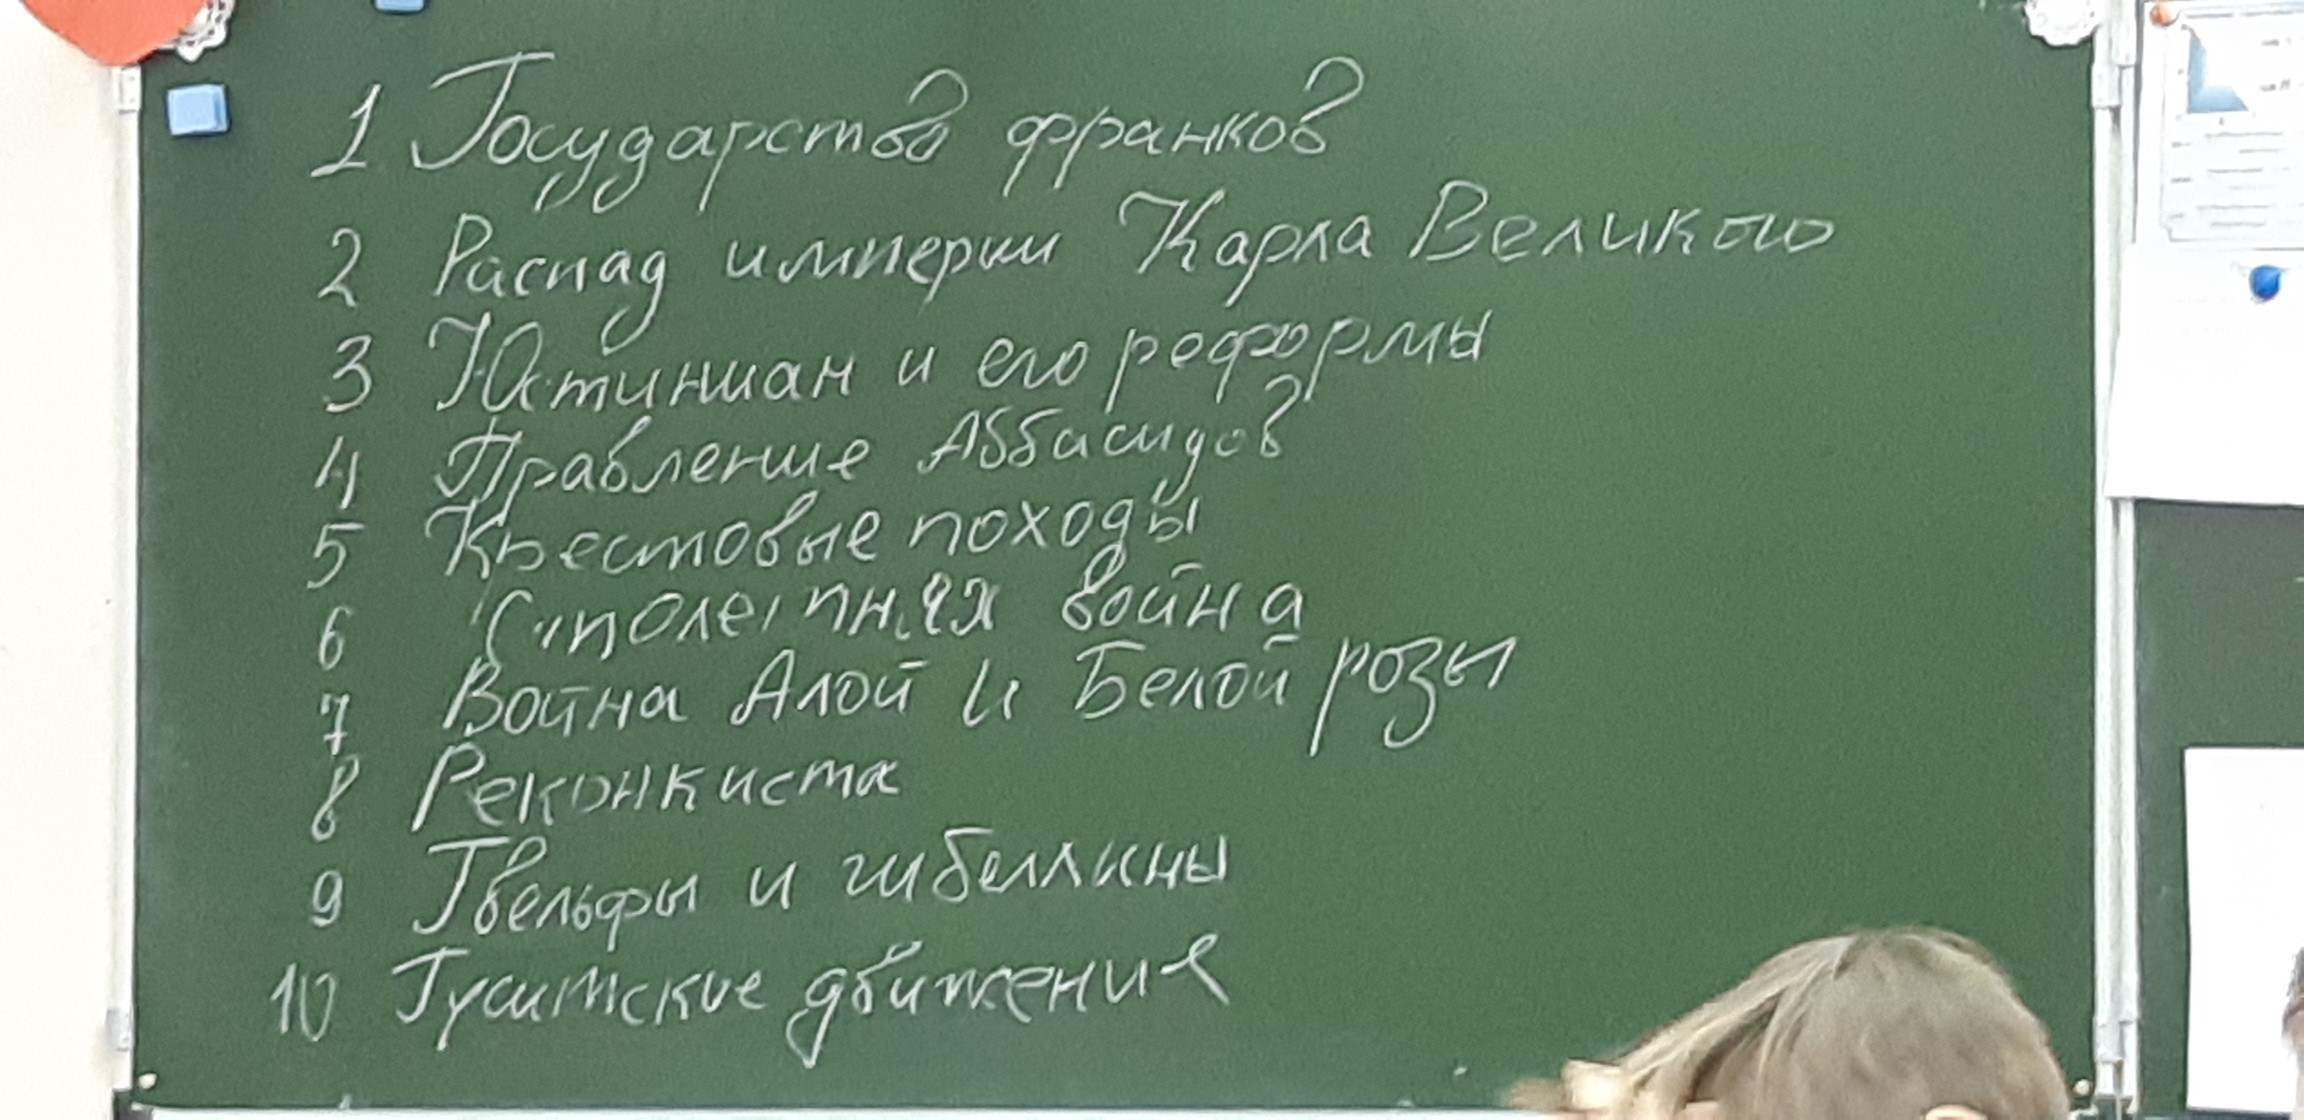 1 Государство франков
2 Распад империи Карла Великого
3 Юстиниан и его реформы
4 Правление Аббасидов
5 Крестовые походы
6 Столетняя война
7 Война Алой и Белой розы
8 Реконкиста
9 Гвельфы и гибеллины
10 Гуситские движение